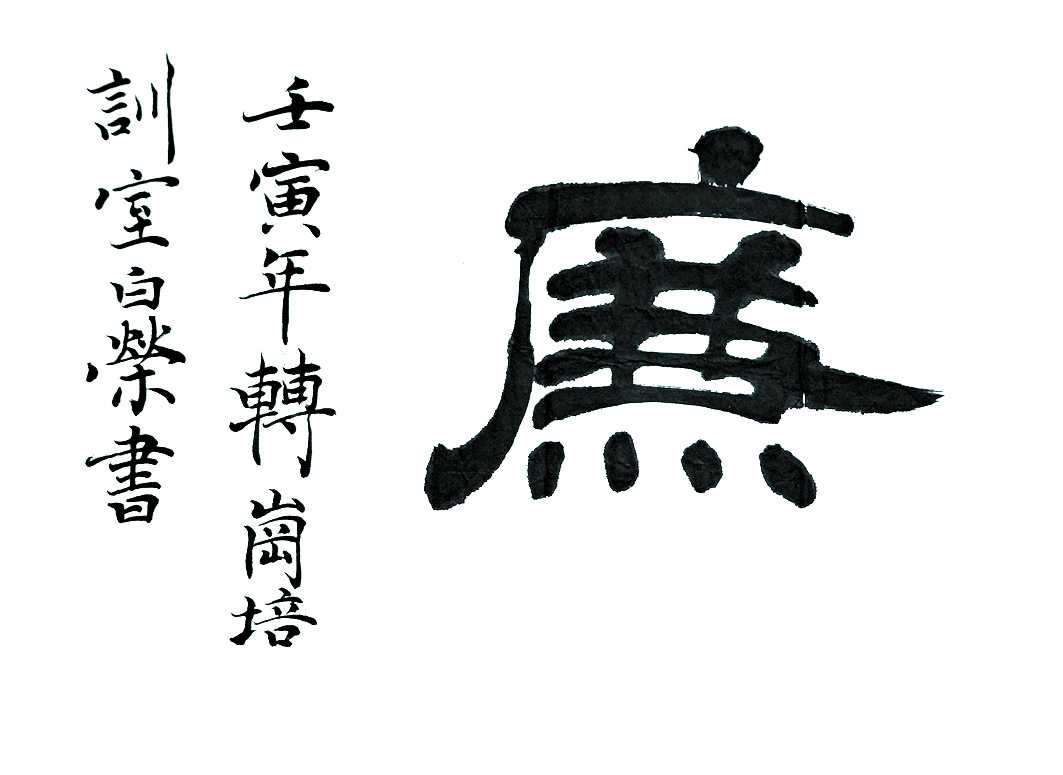 廉
壬寅年轉崗培
訓室白榮書